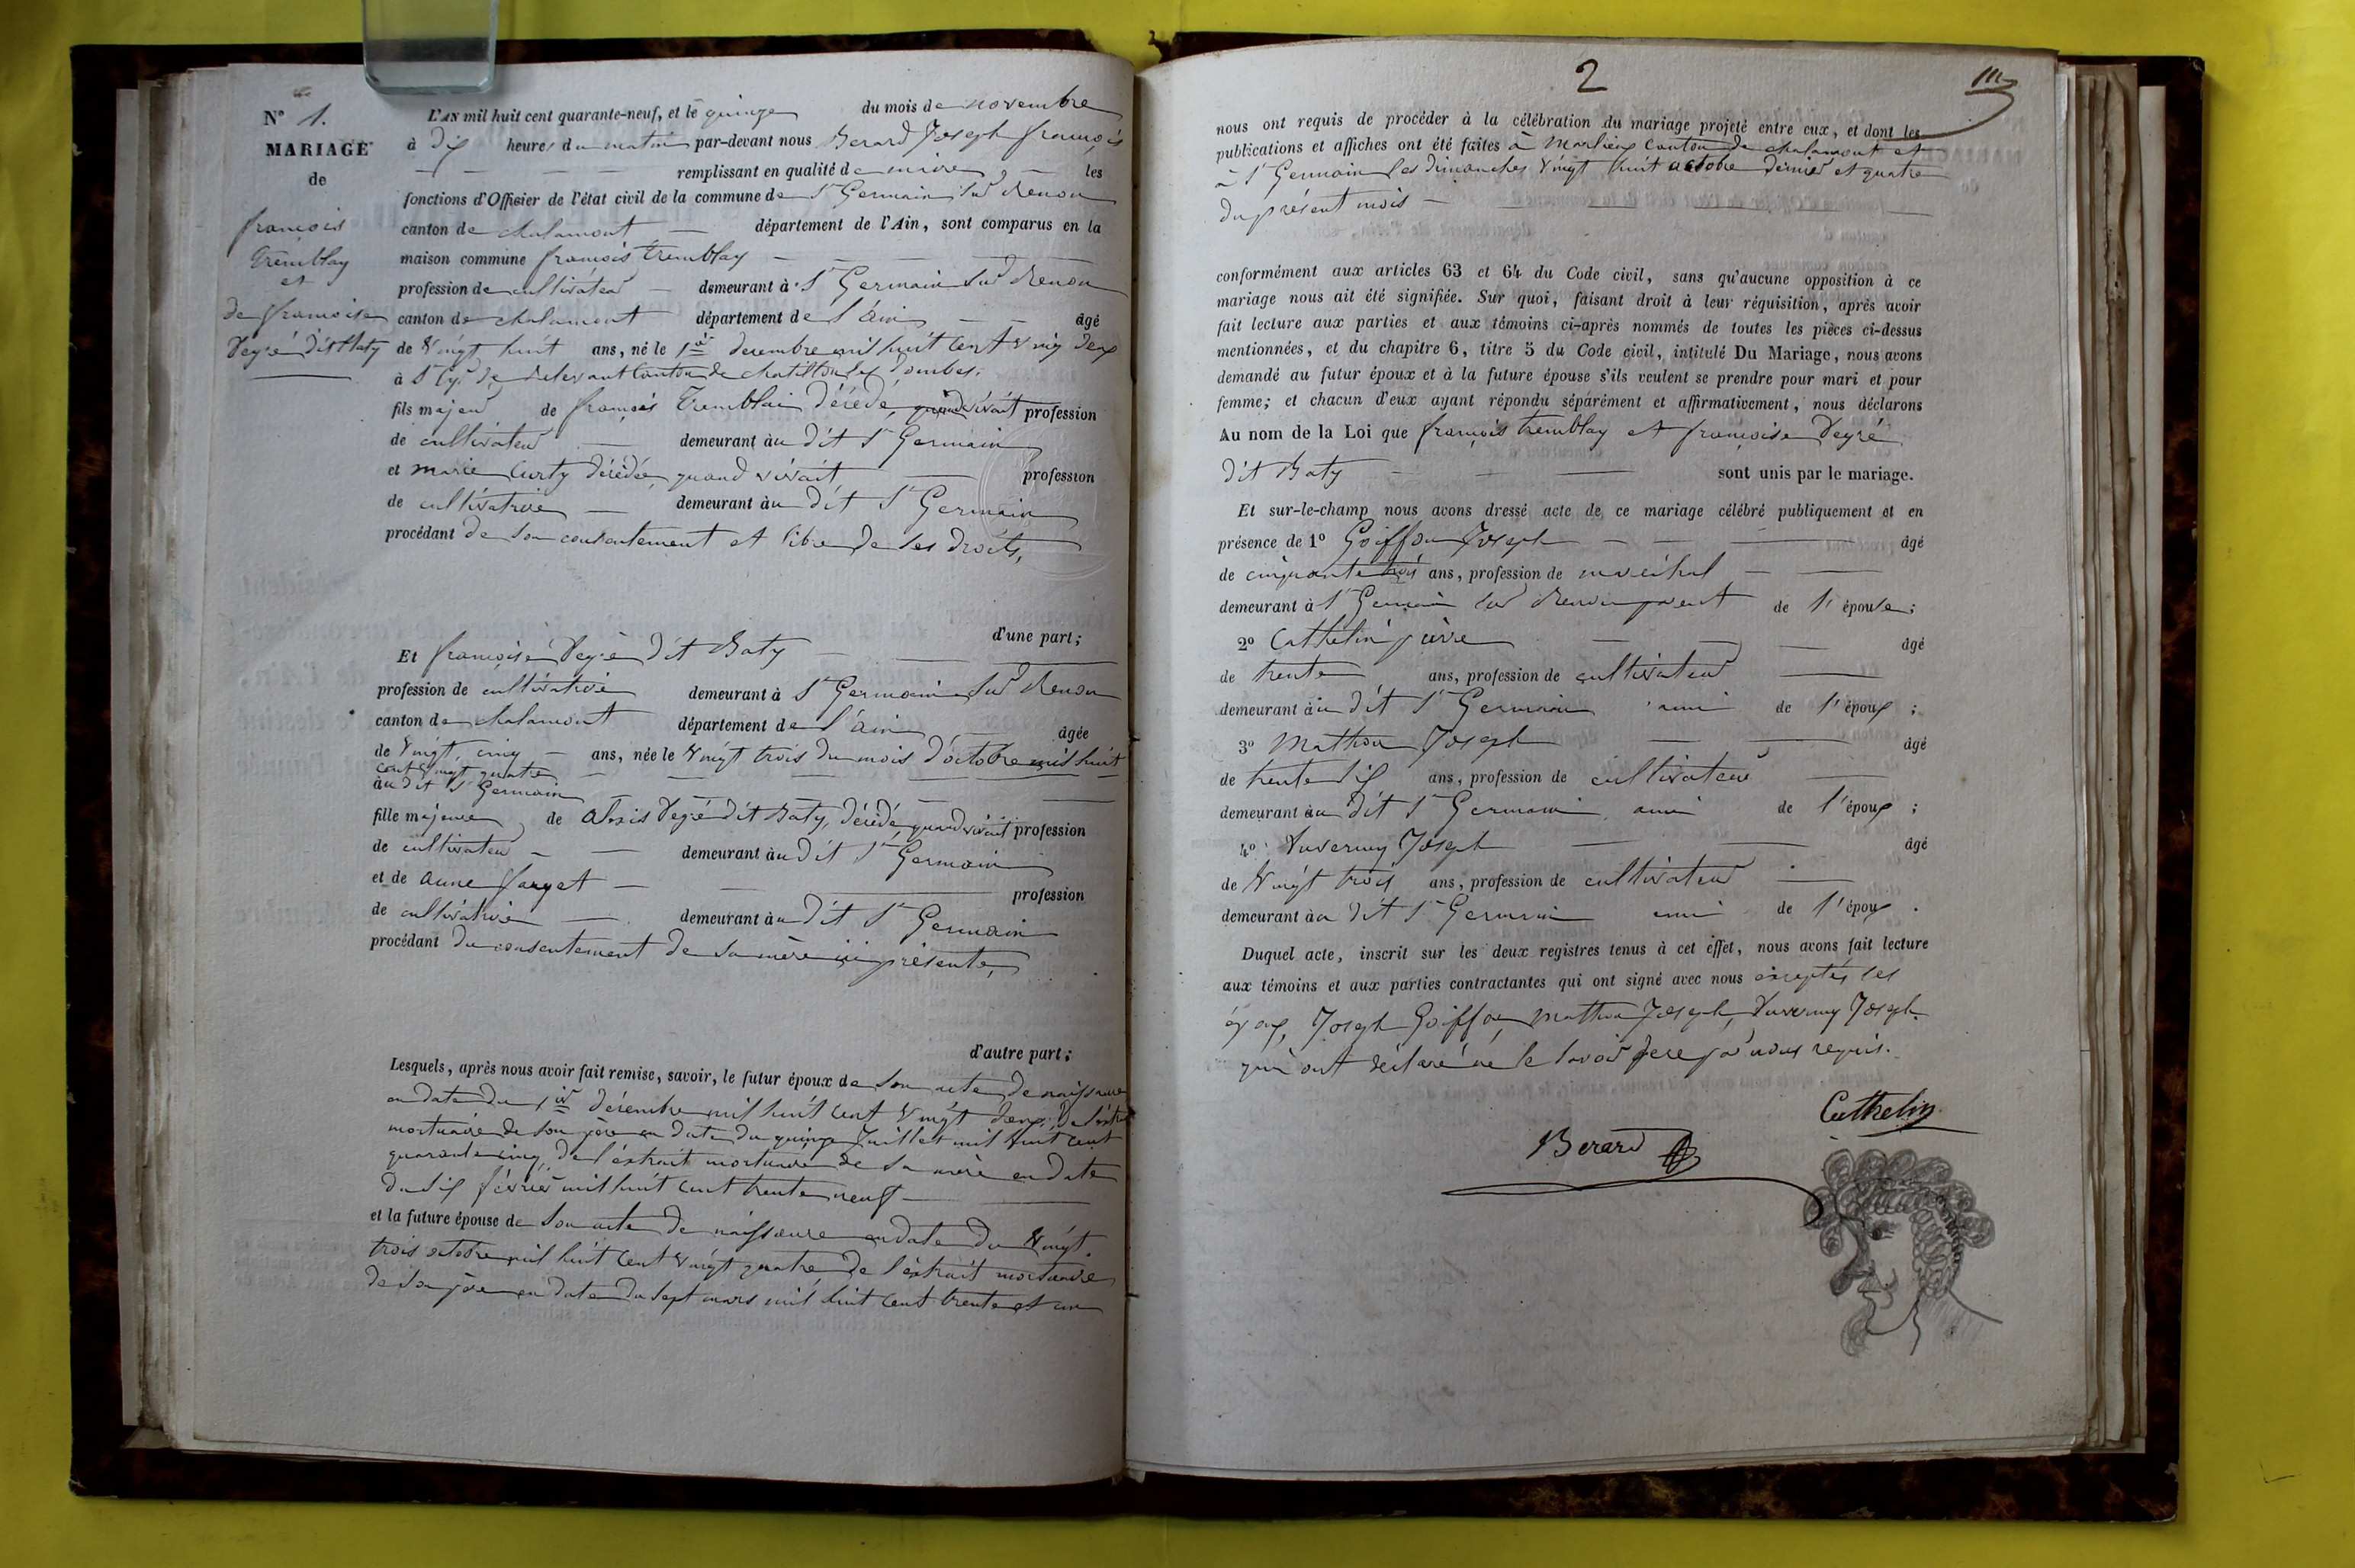 N° 1.
MARIAGE
de
françois
Tremblay
et
de françoise
Veyré dit Baty
L'AN mil huit cent quarante-neuf, et le quinze du mois de novembre
à dix heures du matin par-devant nous Berard Joseph françois
remplissant en qualité de maire les
fonctions d'Officier de l'état civil de la commune de St Germain sur Renon
canton de chalamont département de l'Ain, sont comparus en la
maison commune françois tremblay
profession de cultivateur demeurant à St Germain sur Renon
canton de chalamont département de l'ain âgé
de vingt huit ans, né le 1er décembre mil huit cent vingt deux
à St Cyr de Relevant canton de chatillon les Dombes.
fils majeur de françois Tremblai décédé, quand vivait profession
de cultivateur demeurant au dit St Germain
et marie Curty décédée, quand vivait profession
de cultivatrice demeurant au dit St Germain
procédant de son consentement et libre de ses droits,
d'une part;
Et françoise Veyré dit Baty
profession de cultivatrice demeurant à St Germain sur Renon
canton de chalamont département de l'ain âgée
de vingt cinq ans, née le vingt trois du mois d'octobre mil huit
cent vingt quatre
au dit St Germain
fille majeure de alexis Veyré dit Baty, décédé, quand vivait profession
de cultivateur demeurant au dit St Germain
et de anne farget profession
de cultivatrice demeurant au dit St Germain
procédant du consentement de sa mère ici présente,
d'autre part;
Lesquels, après nous avoir fait remise, savoir, le futur époux de son acte de naissance
en date du 1er décembre mil huit cent vingt deux, de l'extrait
mortuaire de son père en date du quinze juillet mil huit cent
quarante cinq, de l'extrait mortuaire de sa mère en date
du six février mil huit cent trente neuf
et la future épouse de son acte de naissance en date du vingt
trois octobre mil huit cent vingt quatre de l'extrait mortuaire
de son père en date du sept mars mil huit cent trente et un
2
nous ont requis de procéder à la célébration du mariage projeté entre eux, et dont les
publications et affiches ont été faites à Marlieux canton de chalamont et
à St Germain les dimanches vingt huit octobre dernier et quatre
du présent mois
conformément aux articles 63 et 64 du Code civil, sans qu'aucune opposition à ce
mariage nous ait été signifiée. Sur quoi, faisant droit à leur réquisition, après avoir
fait lecture aux parties et aux témoins ci-après nommés de toutes les pièces ci-dessus
mentionnées, et du chapitre 6, titre 5 du Code civil, intitulé Du Mariage, nous avons
demandé au futur époux et à la future épouse s'ils veulent se prendre pour mari et pour
femme; et chacun d'eux ayant répondu séparément et affirmativement, nous déclarons
Au nom de la Loi que françois tremblay et françoise Veyré
dit Baty sont unis par le mariage.
Et sur-le-champ nous avons dressé acte de ce mariage célébré publiquement et en
présence de 1° Goiffon Joseph âgé
de cinquante trois ans, profession de maréchal
demeurant à St Germain sur Renon parent de l'épouse;
2° Cathelin pierre âgé
de trente ans, profession de cultivateur
demeurant au dit St Germain ami de l'époux;
3° Mathon Joseph âgé
de trente six ans, profession de cultivateur
demeurant au dit St Germain ami de l'époux;
4° Duvernay Joseph âgé
de vingt trois ans, profession de cultivateur
demeurant au dit St Germain ami de l'époux.
Duquel acte, inscrit sur les deux registres tenus à cet effet, nous avons fait lecture
aux témoins et aux parties contractantes qui ont signé avec nous exceptés les
époux, Joseph Goiffon, Mathon Joseph, Duvernay Joseph
qui ont déclaré ne le savoir de ce par nous requis.
Cathelin
Berard